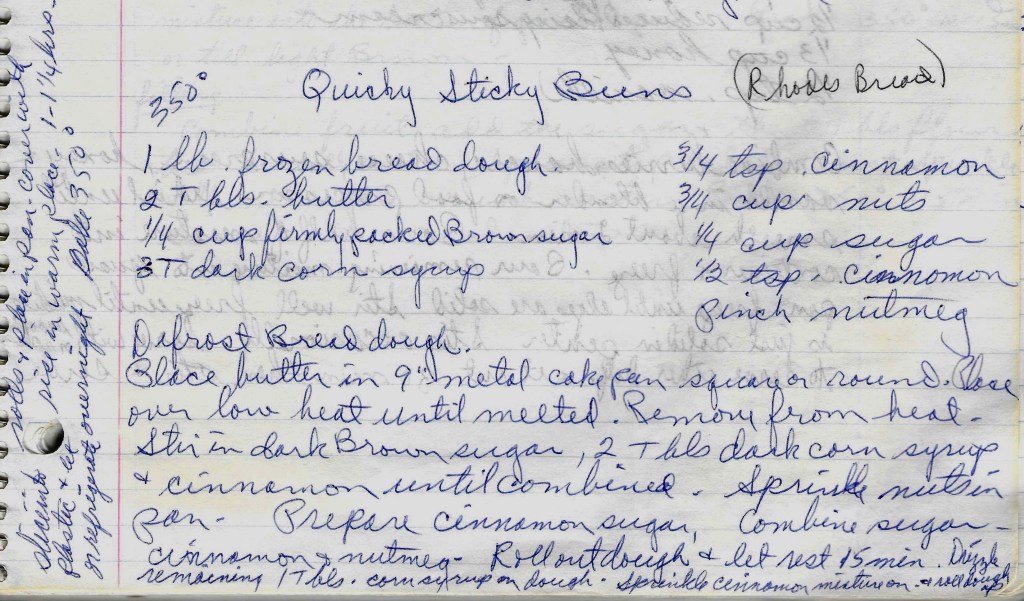 350° Quicky Sticky Buns (Rhodes Bread)
1 lb. frozen bread dough. 3/4 tsp. cinnamon
2 Tbls. butter 3/4 cup nuts
1/4 cup firmly packed Brown sugar 1/4 cup sugar
3 T dark corn syrup 1/2 tsp. cinnamon
Pinch nutmeg
Defrost Bread dough.
Place butter in 9" metal cake pan square or round. Place
over low heat until melted. Remove from heat.
Stir in dark Brown sugar, 2 Tbls dark corn syrup
& cinnamon until combined. Sprinkle nuts in
pan. Prepare cinnamon sugar, Combine sugar -
cinnamon & nutmeg. Roll out dough & let rest 15 min. Drizzle
remaining 1 Tbls. corn syrup on dough. Sprinkle cinnamon mixture on. & roll dough up
slice into rolls & place in pan. Cover with
plastic & let rise in warm place 1-1 1/4 hrs.
or refrigerate overnight Bake 350°